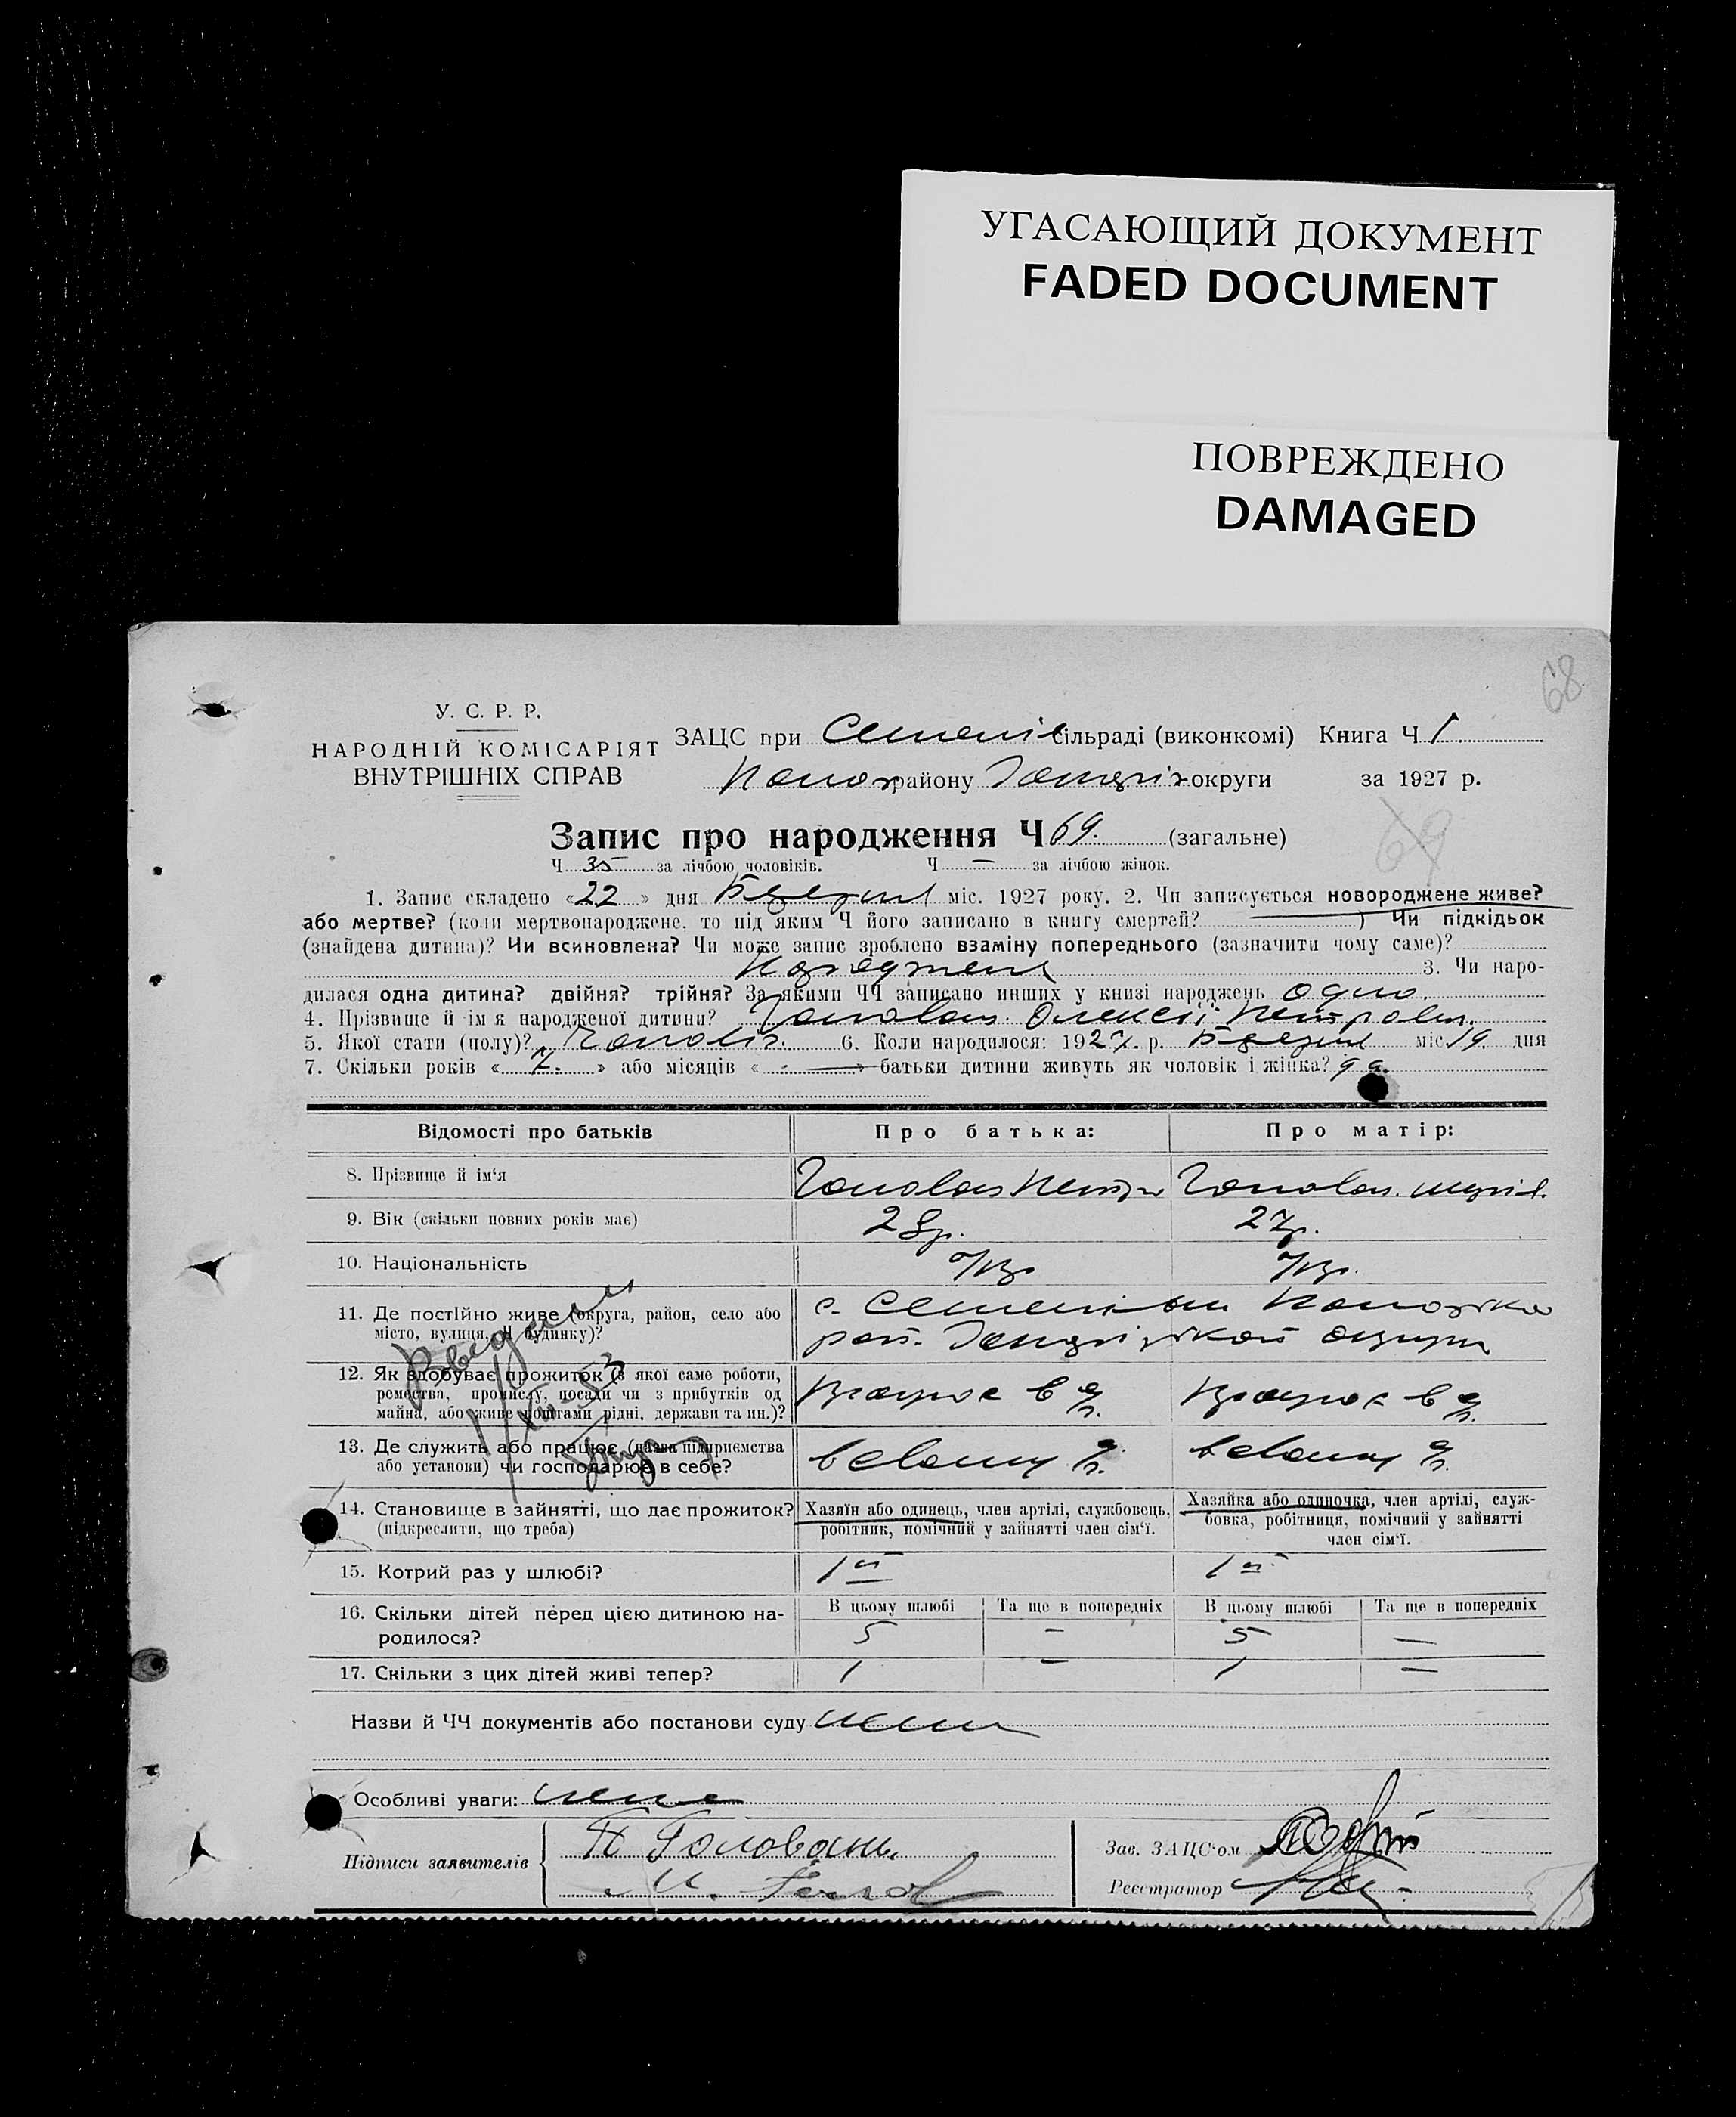 УГАСАЮЩИЙ ДОКУМЕНТ
FADED DOCUMENT
ПОВРЕЖДЕНО
DAMAGED
68
У. С. Р. Р.
НАРОДНІЙ КОМІСАРІЯТ
ВНУТРІШНІХ СПРАВ
ЗАЦС при сільраді (виконкомі) Книга Ч 1
району округи за 1927 р.
Запис про народження Ч 69. (загальне)
69
Ч 35 за лічбою чоловіків. Ч — за лічбою жінок.
1. Запис складено «22» дня Березня міс. 1927 року. 2. Чи записується новороджене живе?
або мертве? (коли мертвонароджене, то під яким Ч його записано в книгу смертей? ) Чи підкідьок
(знайдена дитина)? Чи всиновлена? Чи може запис зроблено взаміну попереднього (зазначити чому саме)?
3. Чи наро-
дилася одна дитина? двійня? трійня? За якими ЧЧ записано инших у книзі народжень одно.
4. Прізвище й ім'я народженої дитини? Головань Олексій Петрович.
5. Якої стати (полу)? 6. Коли народилося: 1927. р. Березня міс. 19. дня
7. Скільки років « » або місяців « — » батьки дитини живуть як чоловік і жінка?
Відомості про батьків
Про батька:
Про матір:
8. Прізвище й ім'я Головань Петро Головань
9. Вік (скільки повних років має) 28р. 27р.
10. Національність Укр. Укр.
11. Де постійно живе (округа, район, село або
місто, вулиця, Ч будинку)?
с.
рай. округи
12. Як здобуває прожиток (з якої саме роботи,
ремества, промислу, посади чи з прибутків од
майна, або живе коштами рідні, держави та ин.)?
13. Де служить або працює (назва підприємства
або установи) чи господарює в себе?
14. Становище в зайнятті, що дає прожиток?
(підкреслити, що треба)
Хазяїн або одинець, член артілі, службовець,
робітник, помічний у зайнятті член сім'ї.
Хазяйка або одиночка, член артілі, служ-
бовка, робітниця, помічний у зайнятті
член сім'ї.
15. Котрий раз у шлюбі? 1й 1й
16. Скільки дітей перед цією дитиною на-
родилося?
В цьому шлюбі Та ще в попередніх В цьому шлюбі Та ще в попередніх
5 — 5 —
17. Скільки з цих дітей живі тепер? 1 — 1 —
Назви й ЧЧ документів або постанови суду нема
Особливі уваги: нема
Підписи заявителів
П Головань.
М. Голов
Зав. ЗАЦС'ом
Реєстратор